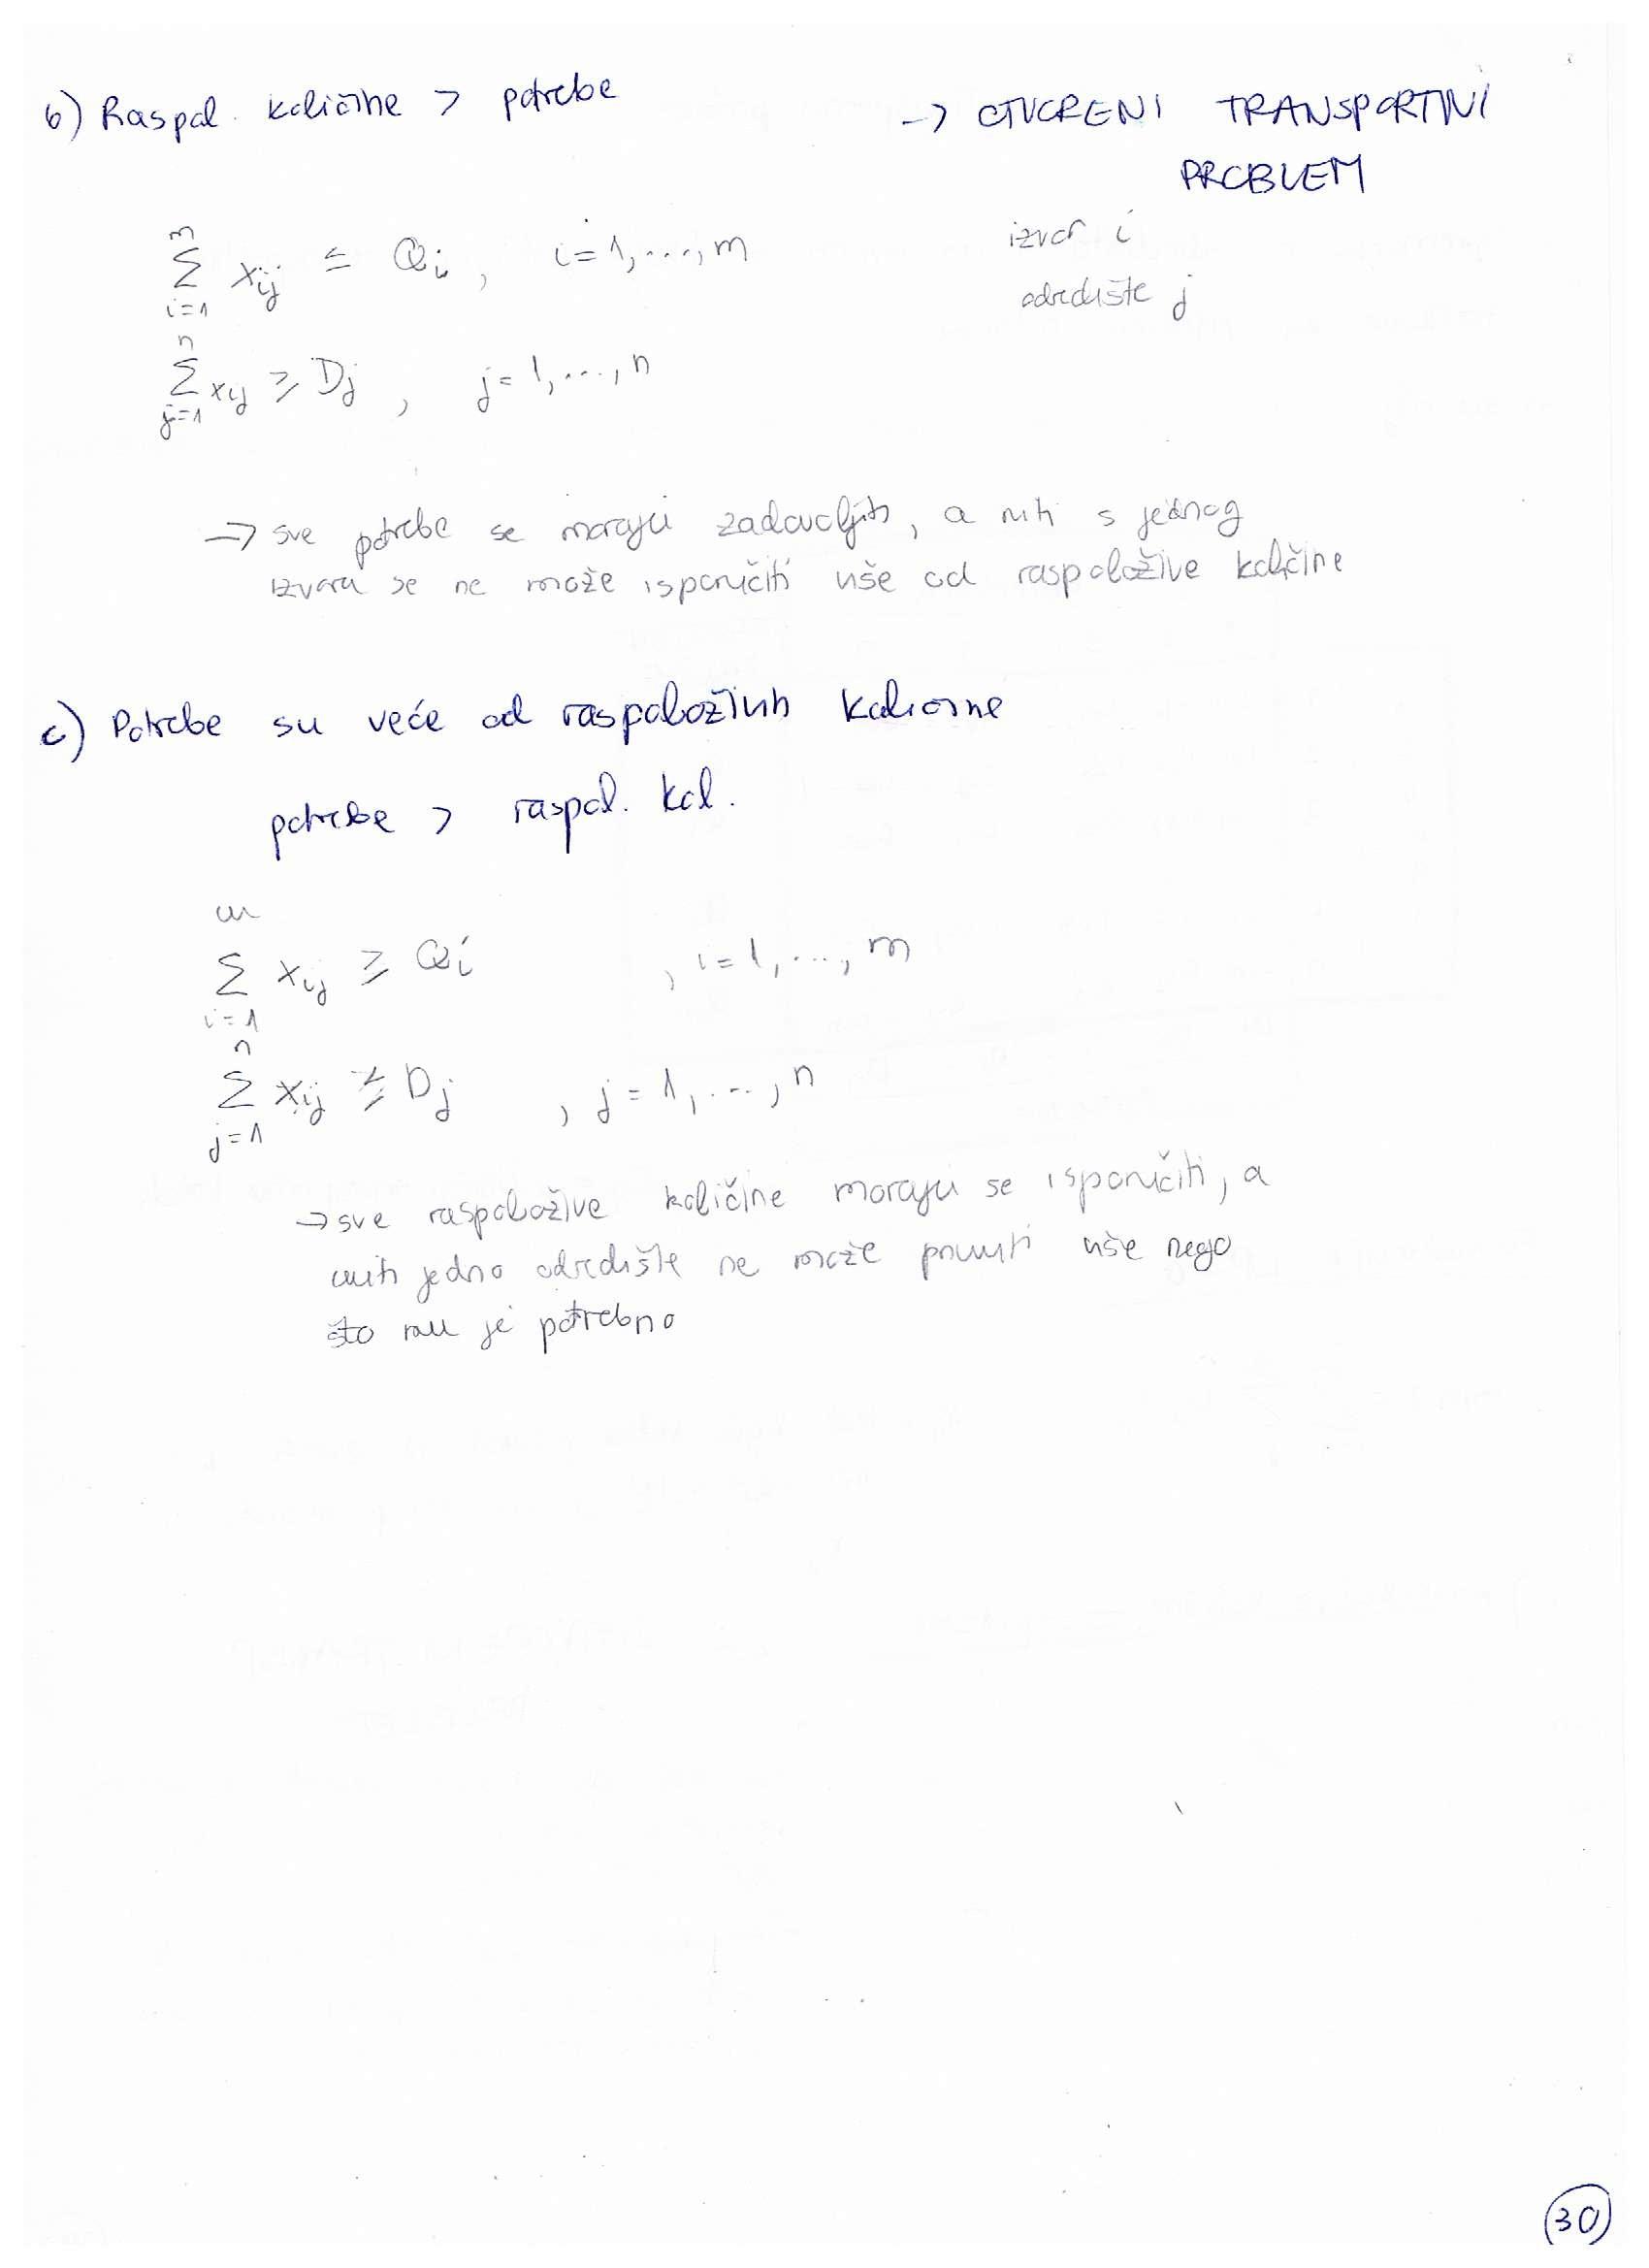 b) Raspol. količine > potrebe → OTVORENI TRANSPORTNI
PROBLEM
m
Σ xij ≤ Qi , i=1,...,m izvor i
i=1 odredište j
n
Σ xij ≥ Dj , j=1,...,n
j=1
→ sve potrebe se moraju zadovoljiti, a niti s jednog
izvora se ne može isporučiti više od raspoložive količine
c) Potrebe su veće od raspoloživih količine
potrebe > raspol. kol.
m
Σ xij ≥ Qi , i=1,...,m
i=1
n
Σ xij Dj , j=1,...,n
j=1
→ sve raspoložive količine moraju se isporučiti, a
niti jedno odredište ne može primiti više nego
što mu je potrebno
30